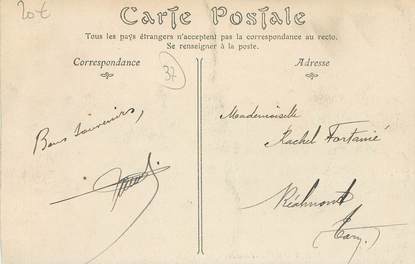 20€
Carte Postale
Tous les pays étrangers n'acceptent pas la correspondance au recto.
Se renseigner à la poste.
Correspondance
37
Adresse
Bons souvenirs,
Mademoiselle
Rachel Fortanié
Réalmont
(Tarn).